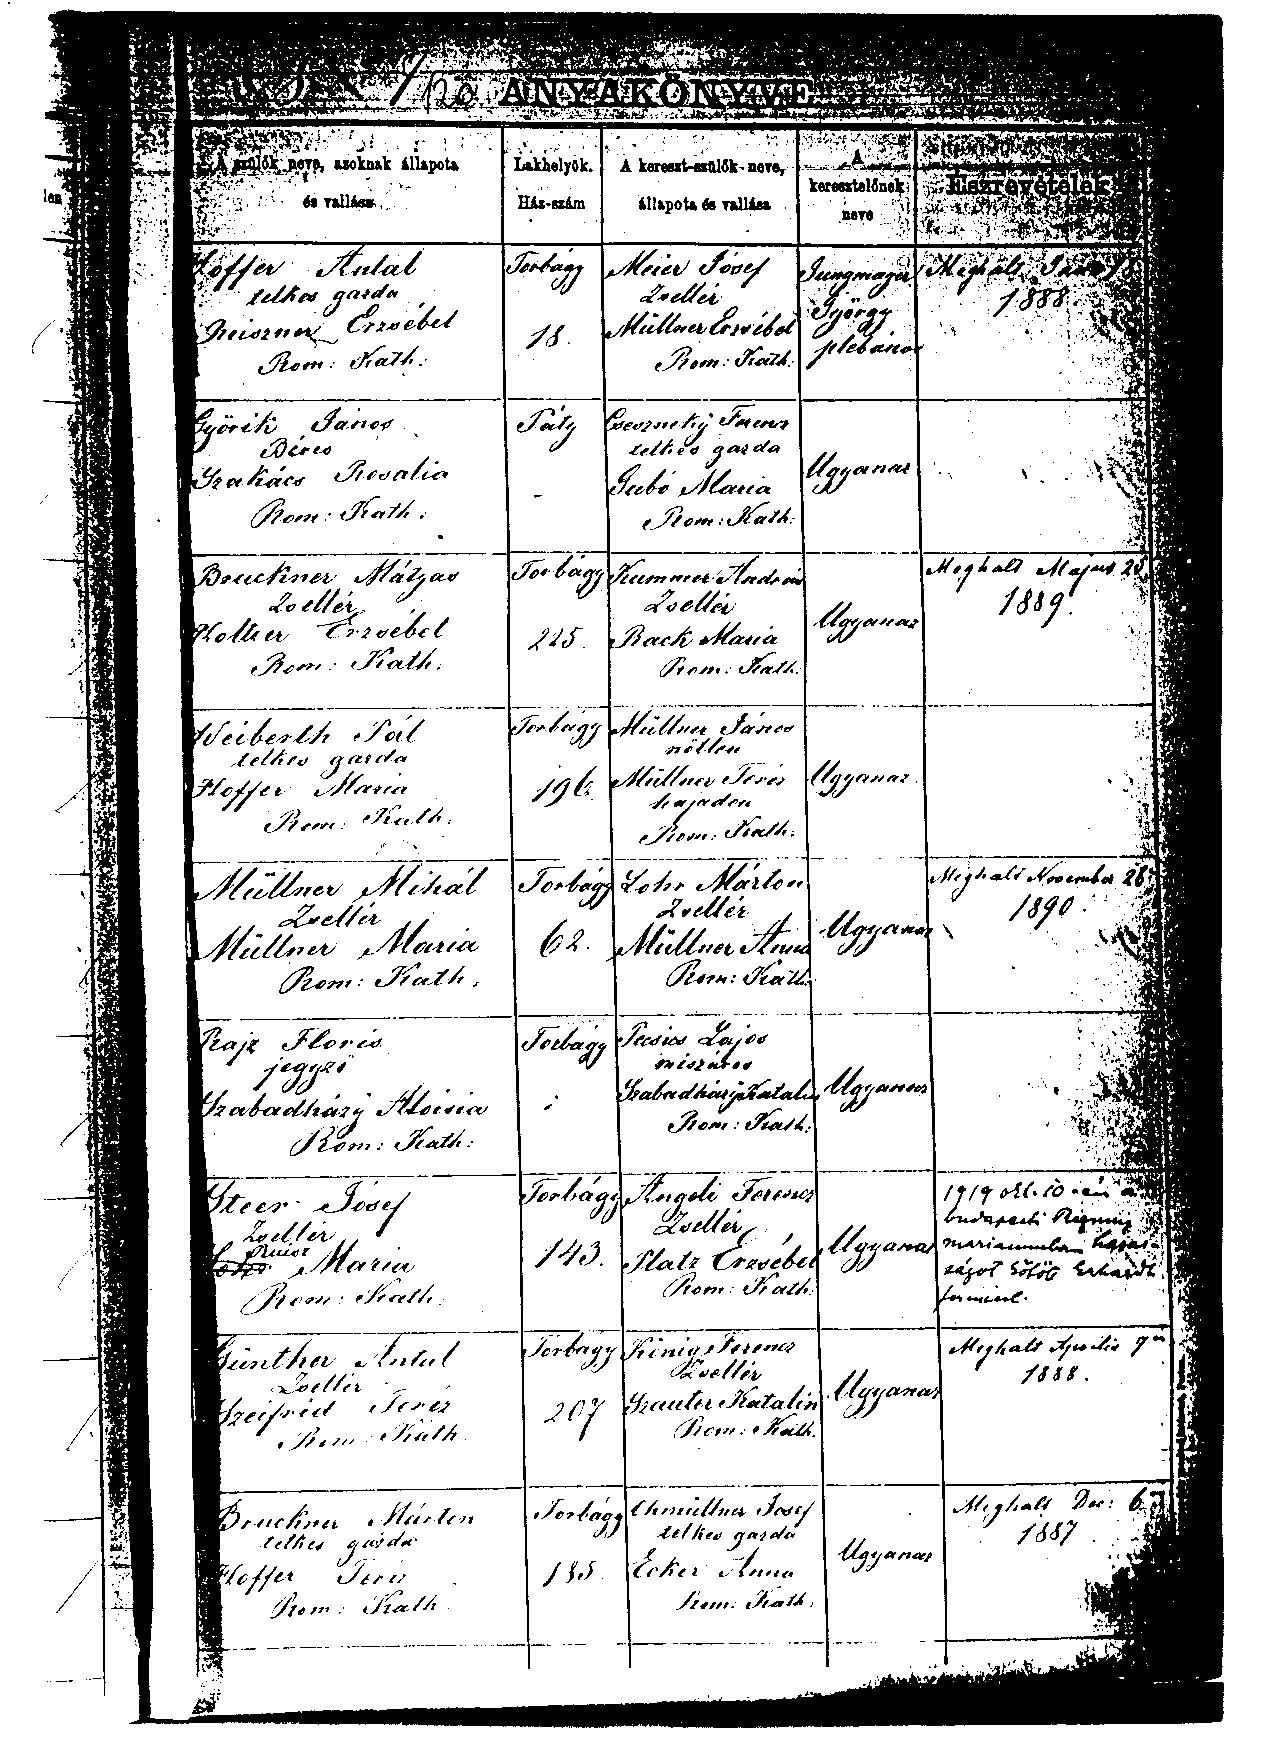 120 ANYAKÖNYVE
A szülők neve, azoknak állapota
és vallása
Lakhelyök.
Ház-szám
A kereszt-szülők neve,
állapota és vallása
A
keresztelőnek
neve
Észrevételek
Hoffer Antal
telkes gazda
Erzsébet
Rom: Kath:
Torbágy
18.
Meier Jósef
Zsellér
Müllner Erzsébet
Rom: Kath:
Jungmayer
György
plébános
Meghalt
1888.
Györik János
Béres
Szakács Rosalia
Rom: Kath:
Páty
-
Cseszneky Ferenc
telkes gazda
Gubó Maria
Rom: Kath:
Ugyanaz
Bruckner Mátyas
Zsellér
Erzsébet
Rom: Kath:
Torbágy
225.
Kummer András
Zsellér
Rack Maria
Rom: Kath:
Ugyanaz
Meghalt Május
1889.
Weiberth Pál
telkes gazda
Hoffer Maria
Rom: Kath:
Torbágy
196.
Müllner János
nőtlen
Müllner Teréz
hajadon
Rom: Kath:
Ugyanaz
Müllner Mihál
Zsellér
Müllner Maria
Rom: Kath.
Torbágy
62.
Lohr Márton
Zsellér
Müllner Anna
Rom: Kath:
Ugyanaz
Meghalt November 26
1890.
Rajz Floris
jegyző
Szabadházÿ Aloisia
Rom: Kath:
Torbágy
Pecsics Lajos
mészáros
Szabadházÿ Katalin
Rom: Kath:
Ugyanaz
Steer Jósef
Zsellér
Maria
Rom: Kath:
Torbágy
143.
Angeli Ferencz
Zsellér
Platz Erzsébet
Rom: Kath:
Ugyanaz
1919 okt. 10-én a
budapesti Regnum
marianumban házas-
ságot kötött Erhardt
Günther Antal
Zsellér
Szeifrid Teréz
Rom: Kath.
Torbágy
207
König Ferencz
Zsellér
Szauter Katalin
Rom: Kath.
Ugyanaz
Meghalt Április 7én
1888.
Bruckner Márton
telkes gazda
Hoffer Teréz
Rom: Kath
Torbágy
185.
Chmüllner Josef
telkes gazda
Ecker Anna
Rom: Kath.
Ugyanaz
Meghalt Dec: 6
1887